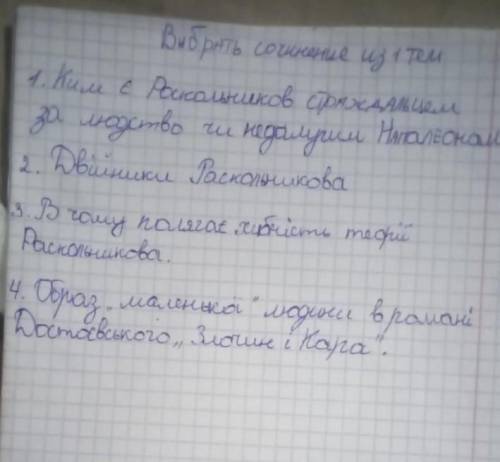 Выбрать сочинение из 1 тем
1. Ким є Раскольников страждальцем
за людство чи недалугим Наполеоном
2. Двійники Раскольникова
3. В чому полягає хибність теорії
Раскольникова.
4. Образ „маленької" людини в романі
Достоєвського „Злочин і Кара".